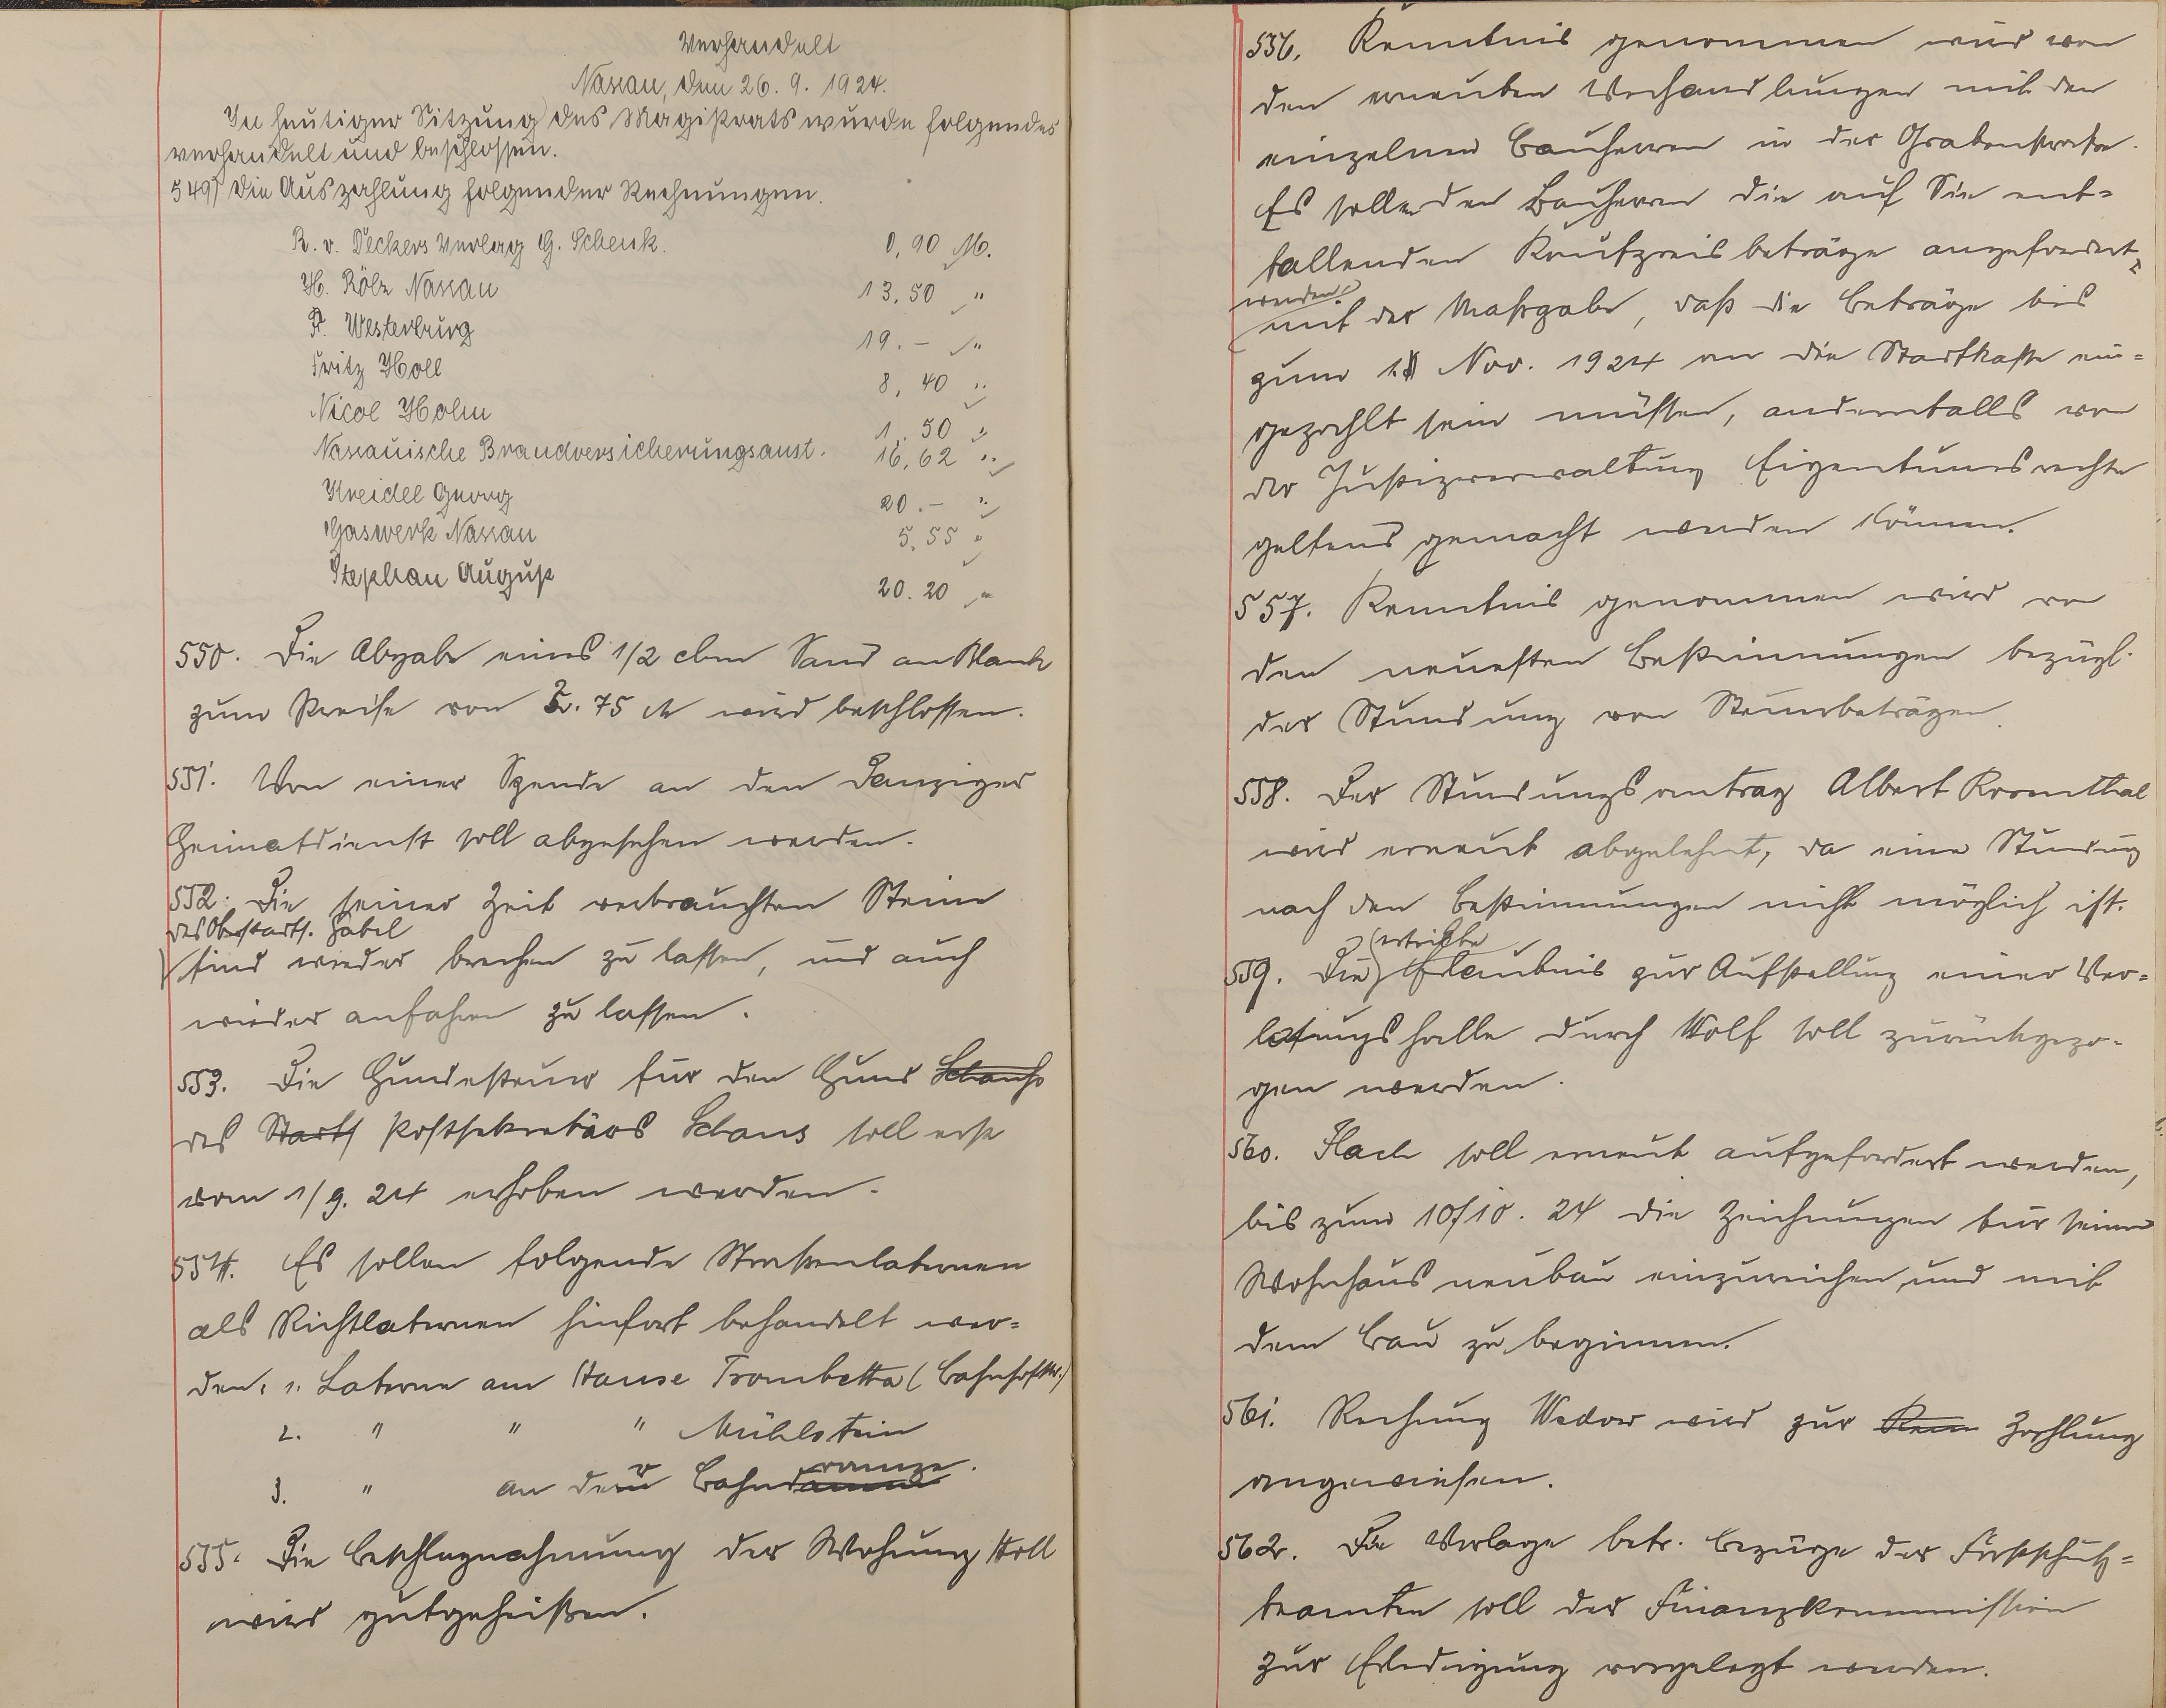 Verhandelt
Nassau, den 26. 9. 1924.
In heutiger Sitzung des Magistrats wurde folgendes
verhandelt und beschlossen.
549) Die Auszahlung folgender Rechnungen.
R. v. Deckers Verlag G. Schenk. 0,90 M.
H. Rölz Nassau 13,50 "
F. Westerburg 19.- "
Fritz Holl 8,40 "
Nicol Holm 1.50 "
Nassauische Brandversicherungsanst. 16,62 "
Kneidel Georg 20.- "
Gaswerk Nassau 5,55 "
Stephan August 20.20 "
550. Die Abgabe eines 1/2 cbm Sand an Blank
zum Preise von 2.75 M wird beschlossen.
551. Von einer Spende an den Danziger
Heimatdienst soll abgesehen werden.
552. Die seiner Zeit verbrauchten Steine
des Oberstarts. Gabel
sind wieder brechen zu lassen, und auch
wieder anfahren zu lassen.
553. Die Hundesteuer für den Hund Schauß
des Stadts Postsekretärs Schaus soll erst
vom 1/9. 24 erhoben werden.
554. Es sollen folgende Straßenlaternen
als Richtlaternen hinfort behandelt wer=
den: 1. Laterne am Hause Trombetta (Bahnhofstr.)
2. " " " Mühlstein
3. " an der Bahnrampe.
555. Die Beschlagnahmung der Wohnung Holl
wird gutgeheißen.
556. Kenntnis genommen wird von
den erneuten Verhandlungen mit den
einzelnen Bauherren in der Grabenstraße.
Es sollen den Bauherren die auf Sie ent=
fallenden Kaufpreisbeträge angefordert
werden
mit der Maßgabe, daß die Beträge bis
zum 1. Nov. 1924 an die Stadtkasse ein=
gezahlt sein müssen, andernfalls von
der Justizverwaltung Eigentumsrechte
geltend gemacht werden können.
557. Kenntnis genommen wird von
den neuesten Bestimmungen bezügl.
der Stundung von Steuerbeträgen.
558. Der Stundungsantrag Albert Rosenthal
wird erneut abgelehnt, da eine Stundung
nach den Bestimmungen nicht möglich ist.
erteilte
559. Die Erlaubnis zur Aufstellung einer Ver=
losungshalle durch Wolf soll zurückgezo-
gen werden.
560. Flach soll erneut aufgefordert werden,
bis zum 10/10. 24 die Zeichnungen für seinen
Wohnhausneubau einzureichen, und mit
dem Bau zu beginnen.
561. Rechnung Wedow wird zur Zahlung
angewiesen.
562. Die Vorlage betr. Bezüge der Forstschutz=
beamten soll der Finanzkommission
zur Erledigung vorgelegt werden.